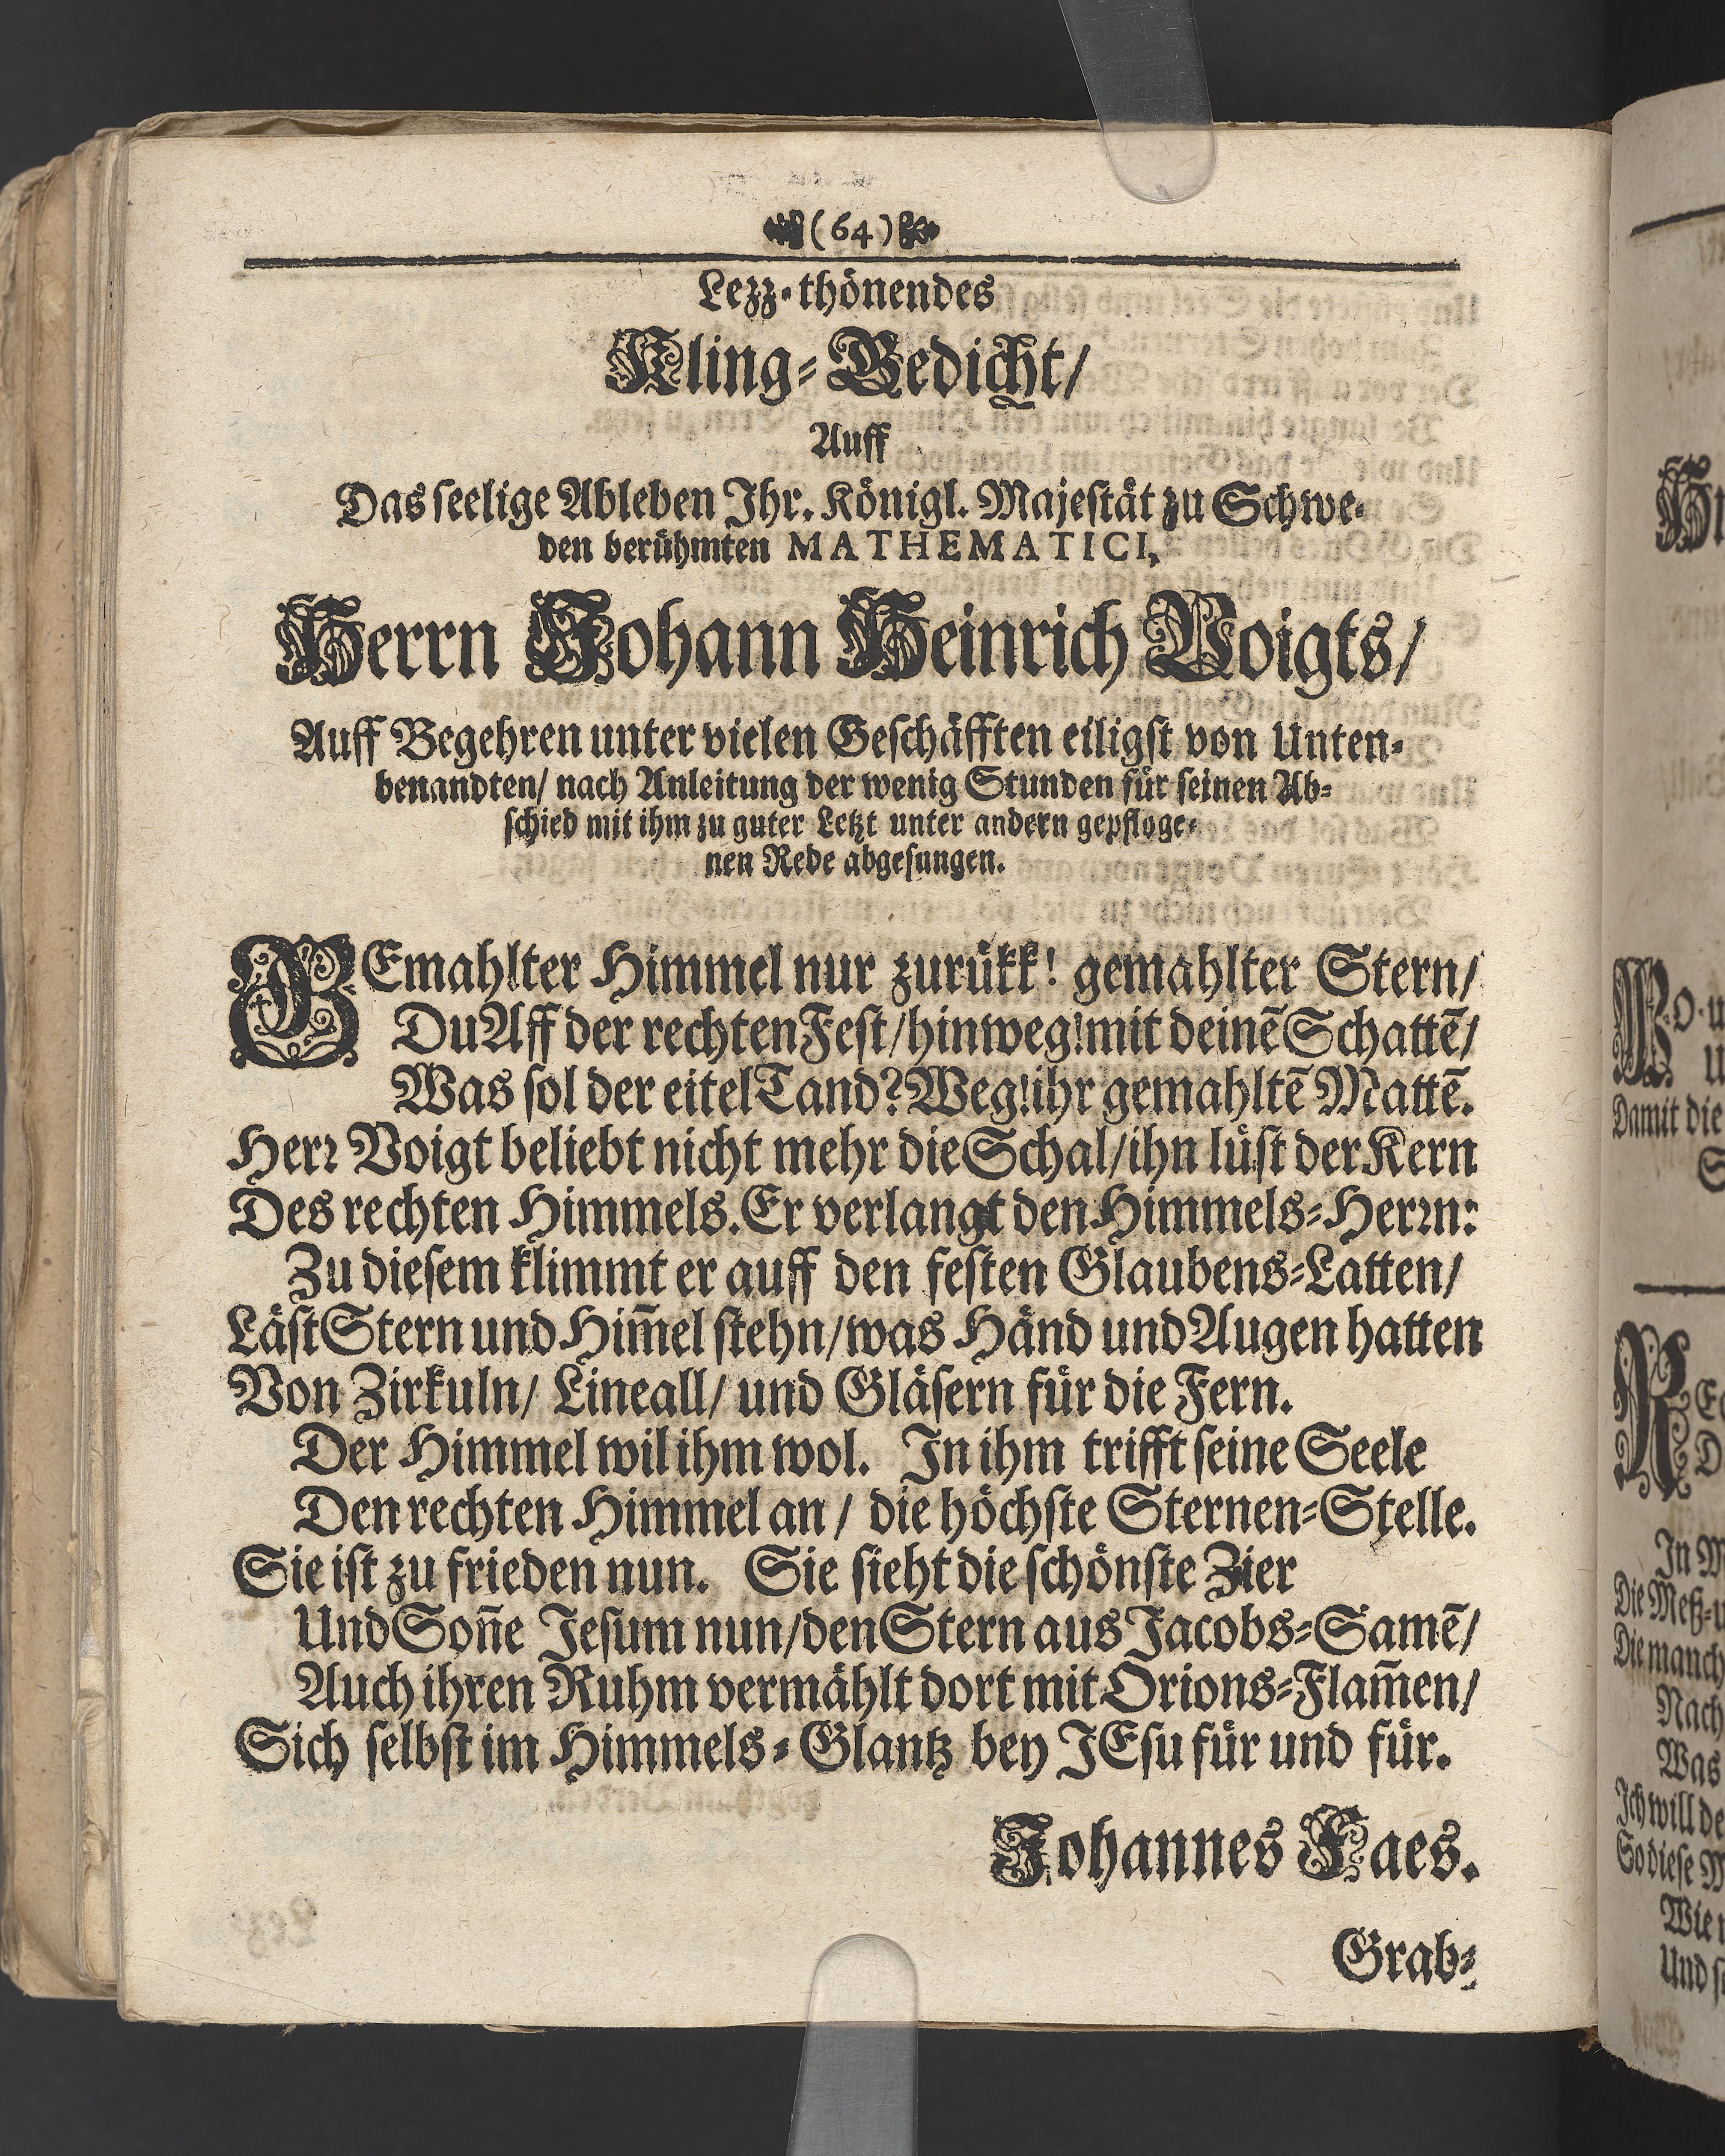 (64)
Lezz-thönendes
Kling-Gedicht/
Auff
Das seelige Ableben Ihr. Königl. Majestät zu Schwe-
den berühmten MATHEMATICI,
Herrn Johann Heinrich Voigts/
Auff Begehren unter vielen Geschäfften eiligst von Unten-
benandten/ nach Anleitung der wenig Stunden für seinen Ab-
schied mit ihm zu guter Letzt unter andern gepfloge-
nen Rede abgesungen.
GEmahlter Himmel nur zurükk! gemahlter Stern/
Du Aff der rechten Fest/ hinweg! mit deinē Schattē/
Was sol der eitel Tand? Weg! ihr gemahltē Mattē.
Herr Voigt beliebt nicht mehr die Schal/ ihn lüst der Kern
Des rechten Himmels. Er verlangt den Himmels-Herrn:
Zu diesem klimmt er auff den festen Glaubens-Latten/
Läst Stern und Him̄el stehn/ was Händ und Augen hatten
Von Zirkuln/ Lineall/ und Gläsern für die Fern.
Der Himmel wil ihm wol. In ihm trifft seine Seele
Den rechten Himmel an/ die höchste Sternen-Stelle.
Sie ist zu frieden nun. Sie sieht die schönste Zier
Und Son̄e Jesum nun/ den Stern aus Jacobs-Samē/
Auch ihren Ruhm vermählt dort mit Orions-Flam̄en/
Sich selbst im Himmels-Glantz bey JEsu für und für.
Johannes Faes.
Grab-